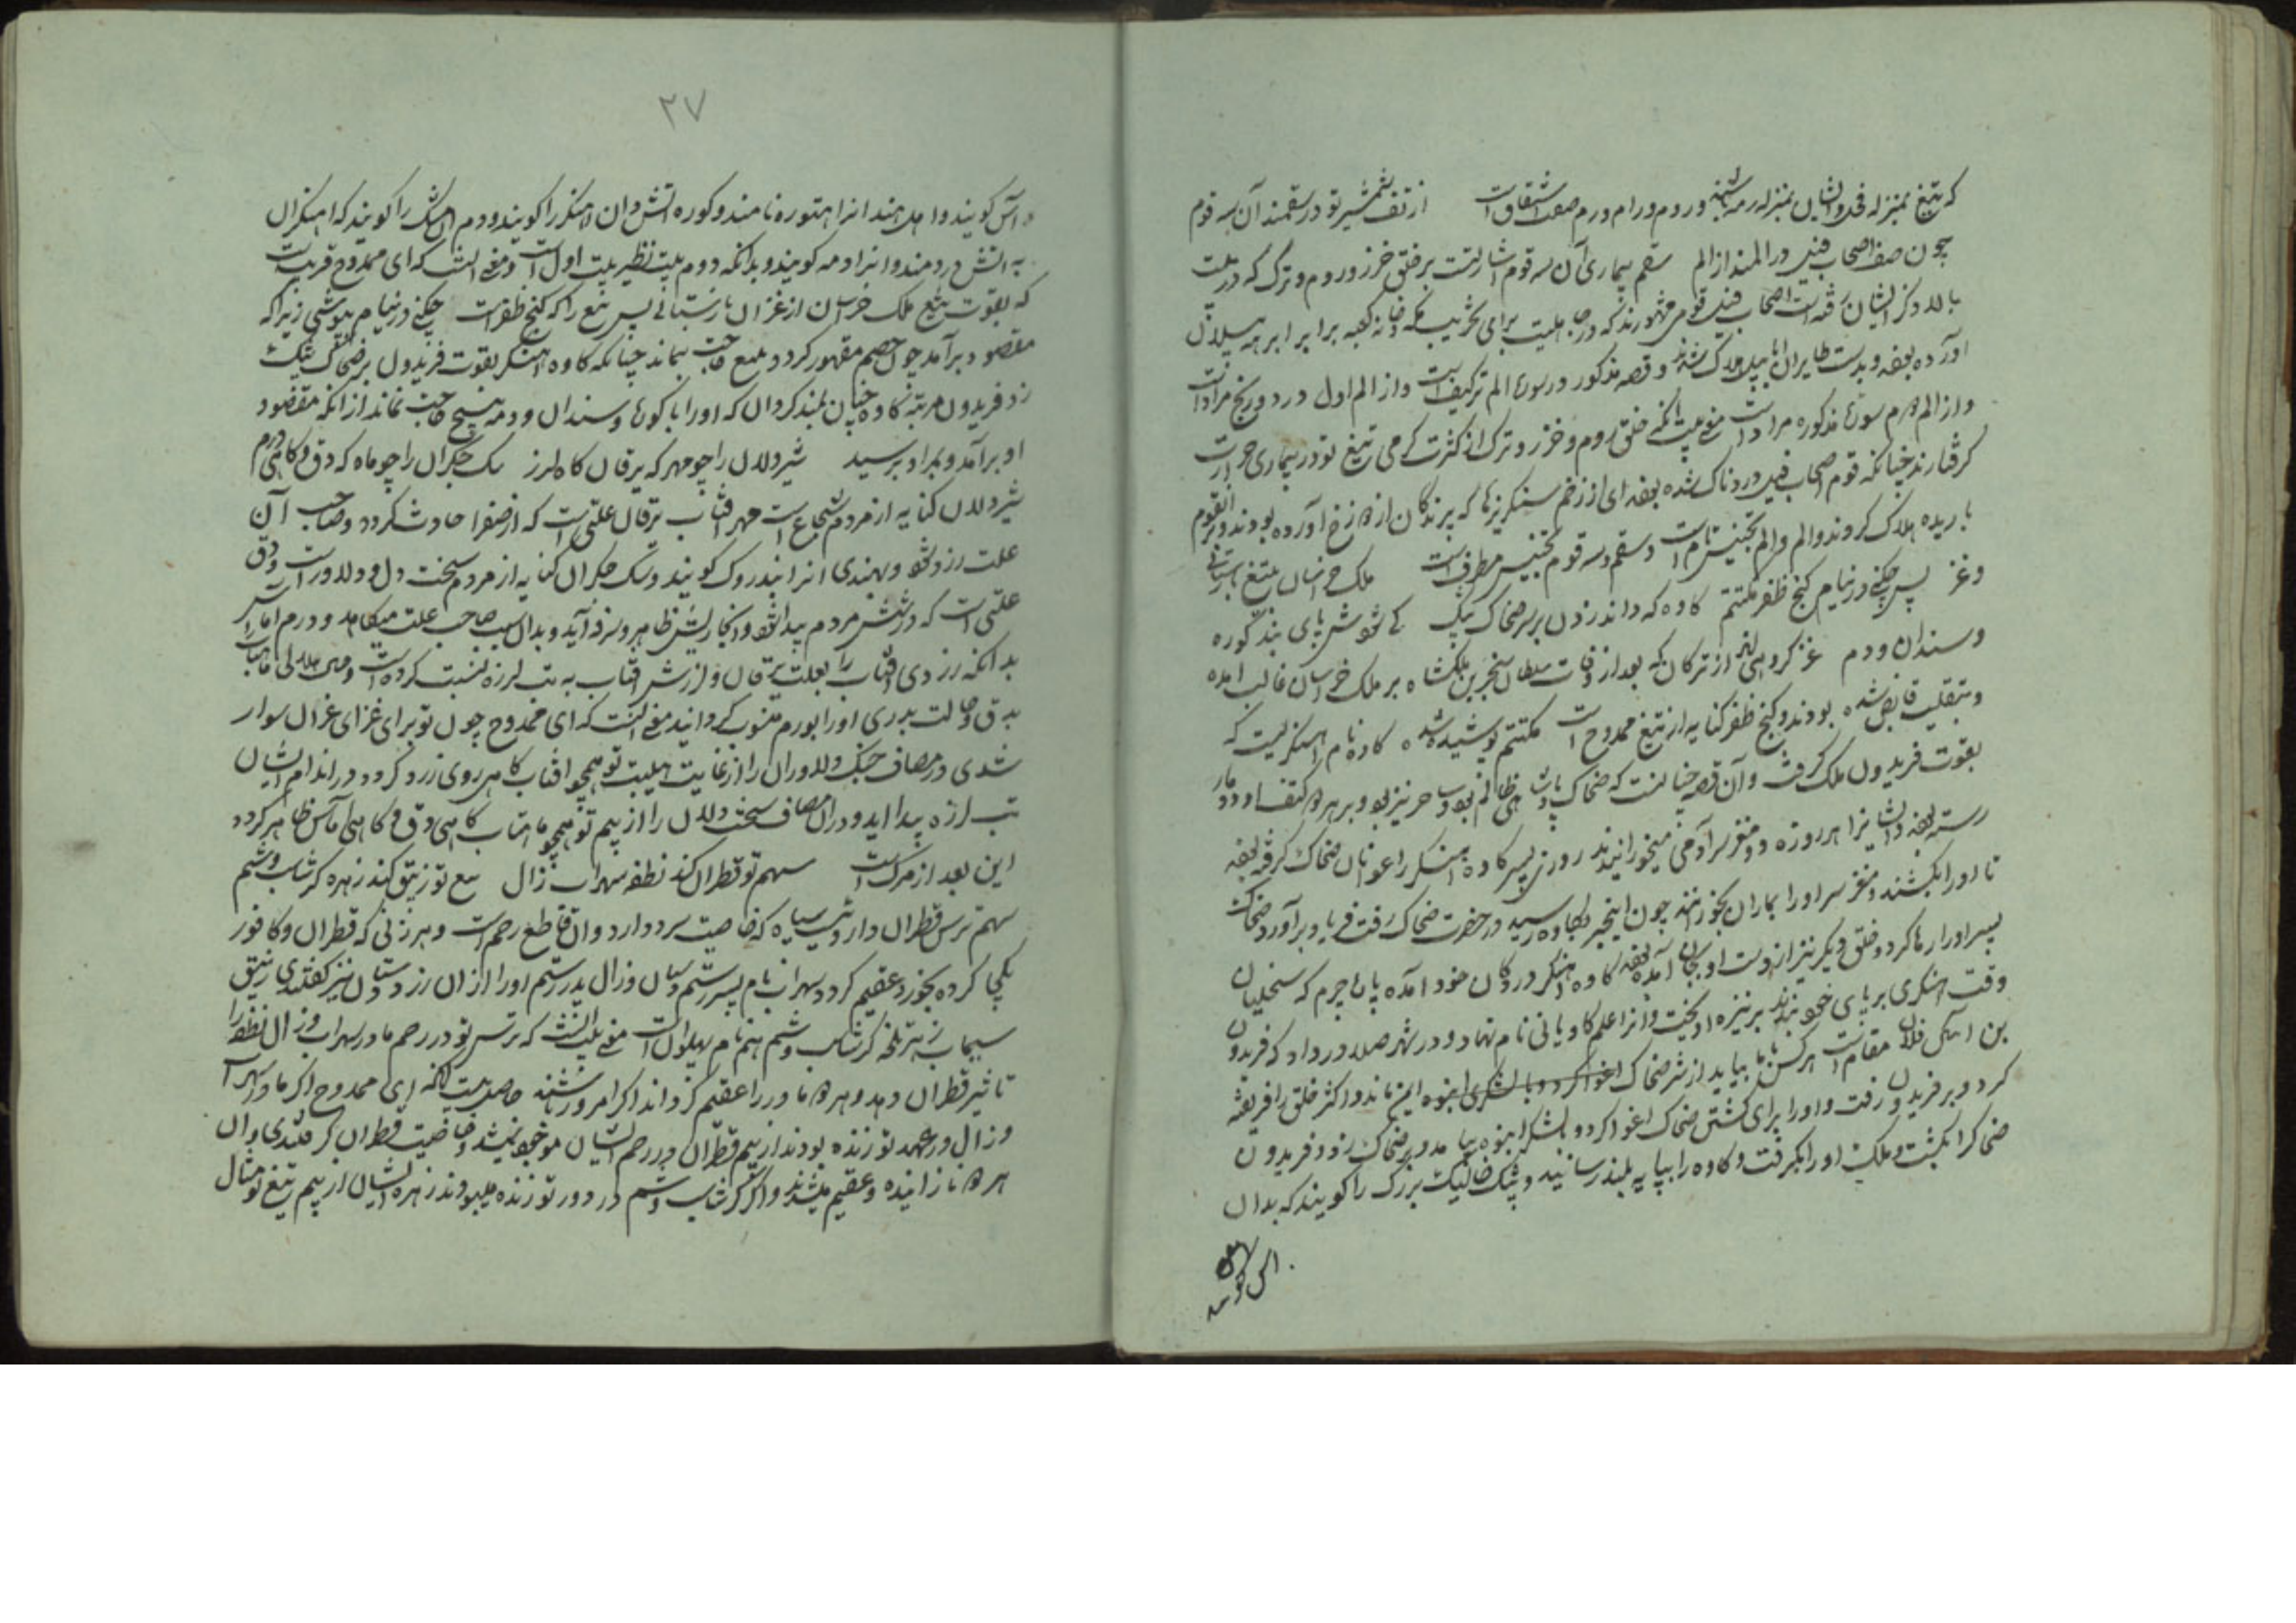 که تیغ بمنزله فحل و ایشان بمنزله رمه باشند و روم و رام و رم صفت اشتقاق است از تف شمشیر تو در سقمند آن سه قوم
چون صف اصحاب فیل در المند از الم سقم بیماری آن سه قوم اشارتست بر خلق خزر و روم و ترک که در بیت
بالا ذکر ایشان رفته است اصحاب فیل قومی مشهورند که در جاهلیت برای تخریب مکه و خانه کعبه برابر ابرهه پیلان
آورده بوده و بدست طیران ابابیل هلاک شدند و قصه مذکور در سورة الم تر کیف است و از الم اول درد و رنج مراد است
و از الم دوم سورة مذکوره مراد است معنی بیت آنکه خلق روم و خزر و ترک از کثرت گرمی تیغ تو در بیماری حرارت
گرفتارند چنانکه قوم اصحاب فیل دردناک شده بوده ای از زخم سنگریزها که پرندگان از دوزخ آورده بودند و بر آنقوم
باریده هلاک کردند و الم و الم تجنیس تام است و سقم و سه قوم تجنیس مطرف است ملک خراسان بتیغ بازستانی
و غز پس چکنی در نیام گنج ظفر مکتتم کاوه که داند زدن بر سر ضحاک پتک کی شودش پای بند کوره
و سندان و دم غز گروهی اند از ترکان که بعد از وفات سلطان سنجر بن ملکشاه بر ملک خراسان غالب آمده
و بتغلب قابض شده بودند و گنج ظفر کنایه از تیغ ممدوح است مکتتم پوشیده شده کاوه نام آهنگریست که
بقوت فریدون ملک گرفت و آن قصه چنانست که ضحاک پادشاهی ظالم بود و ساحر نیز بود و بر هر دو کتف او دو مار
رسته بوده و ایشانرا هر روزه دو مغز سر آدمی میخورانیدند روزی پسر کاوه آهنگر را عوانان ضحاک گرفته بوده
تا او را بکشند و مغز سر او را بماران بخورانند چون اینخبر بکاوه رسید در حضرت ضحاک رفت فریاد برآورد ضحاک
پسر او را رها کرد و خلق دیگر نیز از دست او بجان آمده بوده کاوه آهنگر در دکان خود آمده پاره چرم که
وقت آهنگری بر پای خود بندند بر نیزه آویخت و آنرا علم کاویانی نام نهاد و در شهر صلا در داد که فریدون
بن آبتین فلان مقام است هر کس با ما بیاید از شر ضحاک ایمن ماند و اکثر خلق را فریفته
کرد و بر فریدون رفت و او را برای کشتن ضحاک اغوا کرد و با لشکر انبوه بیامد و بر ضحاک زد و فریدون
ضحاک را بکشت و ملک او را بگرفت و کاوه را بپایه بلند رسانید و پتک خایسک بزرگ را گویند که بدان
۲۷
و آس گویند و اهل هند آنرا هتوره نامند و کوره آتش دان آهنگر را گویند و دم مشک را گویند که آهنگران
به آتش در دمند و آنرا دمه گویند و بدانکه دوم بیت نظیر بیت اول است و معنی آنست که ای ممدوح قریب است
که بقوت تیغ ملک خراسان از غزان بازستانی پس تیغ را که گنج ظفر است چکنی در نیام بپوشی زیرا که
مقصود برآمد چون خصم مقهور گردد بتیغ حاجت نماند چنانکه کاوه آهنگر بقوت فریدون بر ضحاک پتک
زد فریدون مرتبه کاوه چنان بلند گردان که او را با کوره و سندان و دمه هیچ حاجت نماند از آنکه مقصود
او برآمد و بمراد برسید شیردلان را چو مهر گه یرقان گاه لرز سگ جگران را چو ماه گه دق و گاهی ورم
شیردلان کنایه از مردم شجاع است مهر آفتاب یرقان علتی است که از صفرا حادث گردد و صاحب آن
علت زرد شود و بهندی آنرا پندروک گویند و سگ جگران کنایه از مردم سخت دل و دلاور است و دق
علتی است که در شش مردم پیدا شود و آنجا ریش ظاهر و سرفه آید و بدان سبب صاحب علت میکاهد و ورم آماس
بدانکه زردی آفتاب را بعلت یرقان و لرزش آفتاب به تب لرزه نسبت کرده است و هم هلالی ماهتاب
بدق و حالت بدری او را بورم منسوب گردانید معنی آنست که ای ممدوح چون تو برای غزای غزان سوار
شدی در مصاف جنگ دلاوران را از غایت هیبت تو همچو آفتاب گاهی روی زرد گردد در اندام ایشان
تب لرزه پیدا آید و در آن مصاف سخت دلان را از بیم تو همچو ماهتاب گاهی دق و گاهی آماس ظاهر گردد
این بعد از مرگ است سهم تو قطران کند نطفه سهراب زال تیغ تو زیبق کند زهره گرشاسب و شم
سهم ترس قطران داروئیست سیاه که خاصیت سرد دارد و آن قاطع رحم است و هر زنی که قطران و کافور
یکجا کرده بخورد عقیم گردد سهراب نام پسر رستم و سان و زال پدر رستم او را از آن زر و دستان نیز گفتندی زیبق
سیماب زهره تلخه گرشاسب و شم هم نام پهلوان است معنی بیت آنست که ترس تو در رحم مادر سهراب و زال نطفه را
تاثیر قطران دهد و هر دو مادر را عقیم گرداند اگر امروز باشند حاصل بیت آنکه ای ممدوح اگر مادر سهراب
و زال در عهد تو زنده بودند از بیم قطران در رحم ایشان موجود میشد و خاصیت قطران گرفتندی و آن
هر دو نازاینده و عقیم میشدند و اگر گرشاسب و شم در دور تو زنده میبودند زهره ایشان از بیم تیغ تو مثال